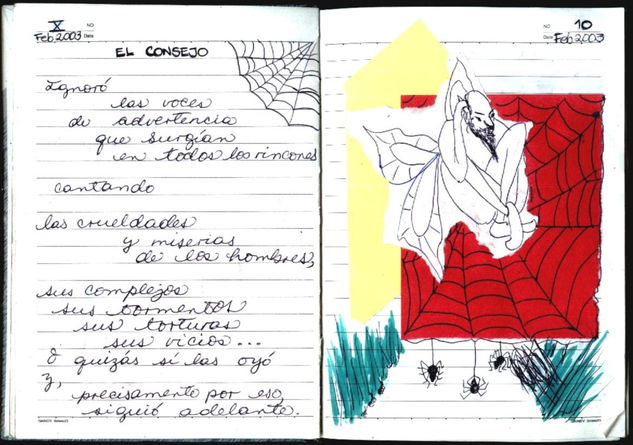 X
NO
Feb 2003
Date
EL CONSEJO
Ignoró
las voces
de advertencia
que surgían
en todos los rincones
cantando
las crueldades
y miserias
de los hombres,
sus complejos
sus tormentos
sus torturas
sus vicios...
O quizás sí las oyó
y,
precisamente por eso,
siguió adelante.
NO
10
Date
Feb 2003